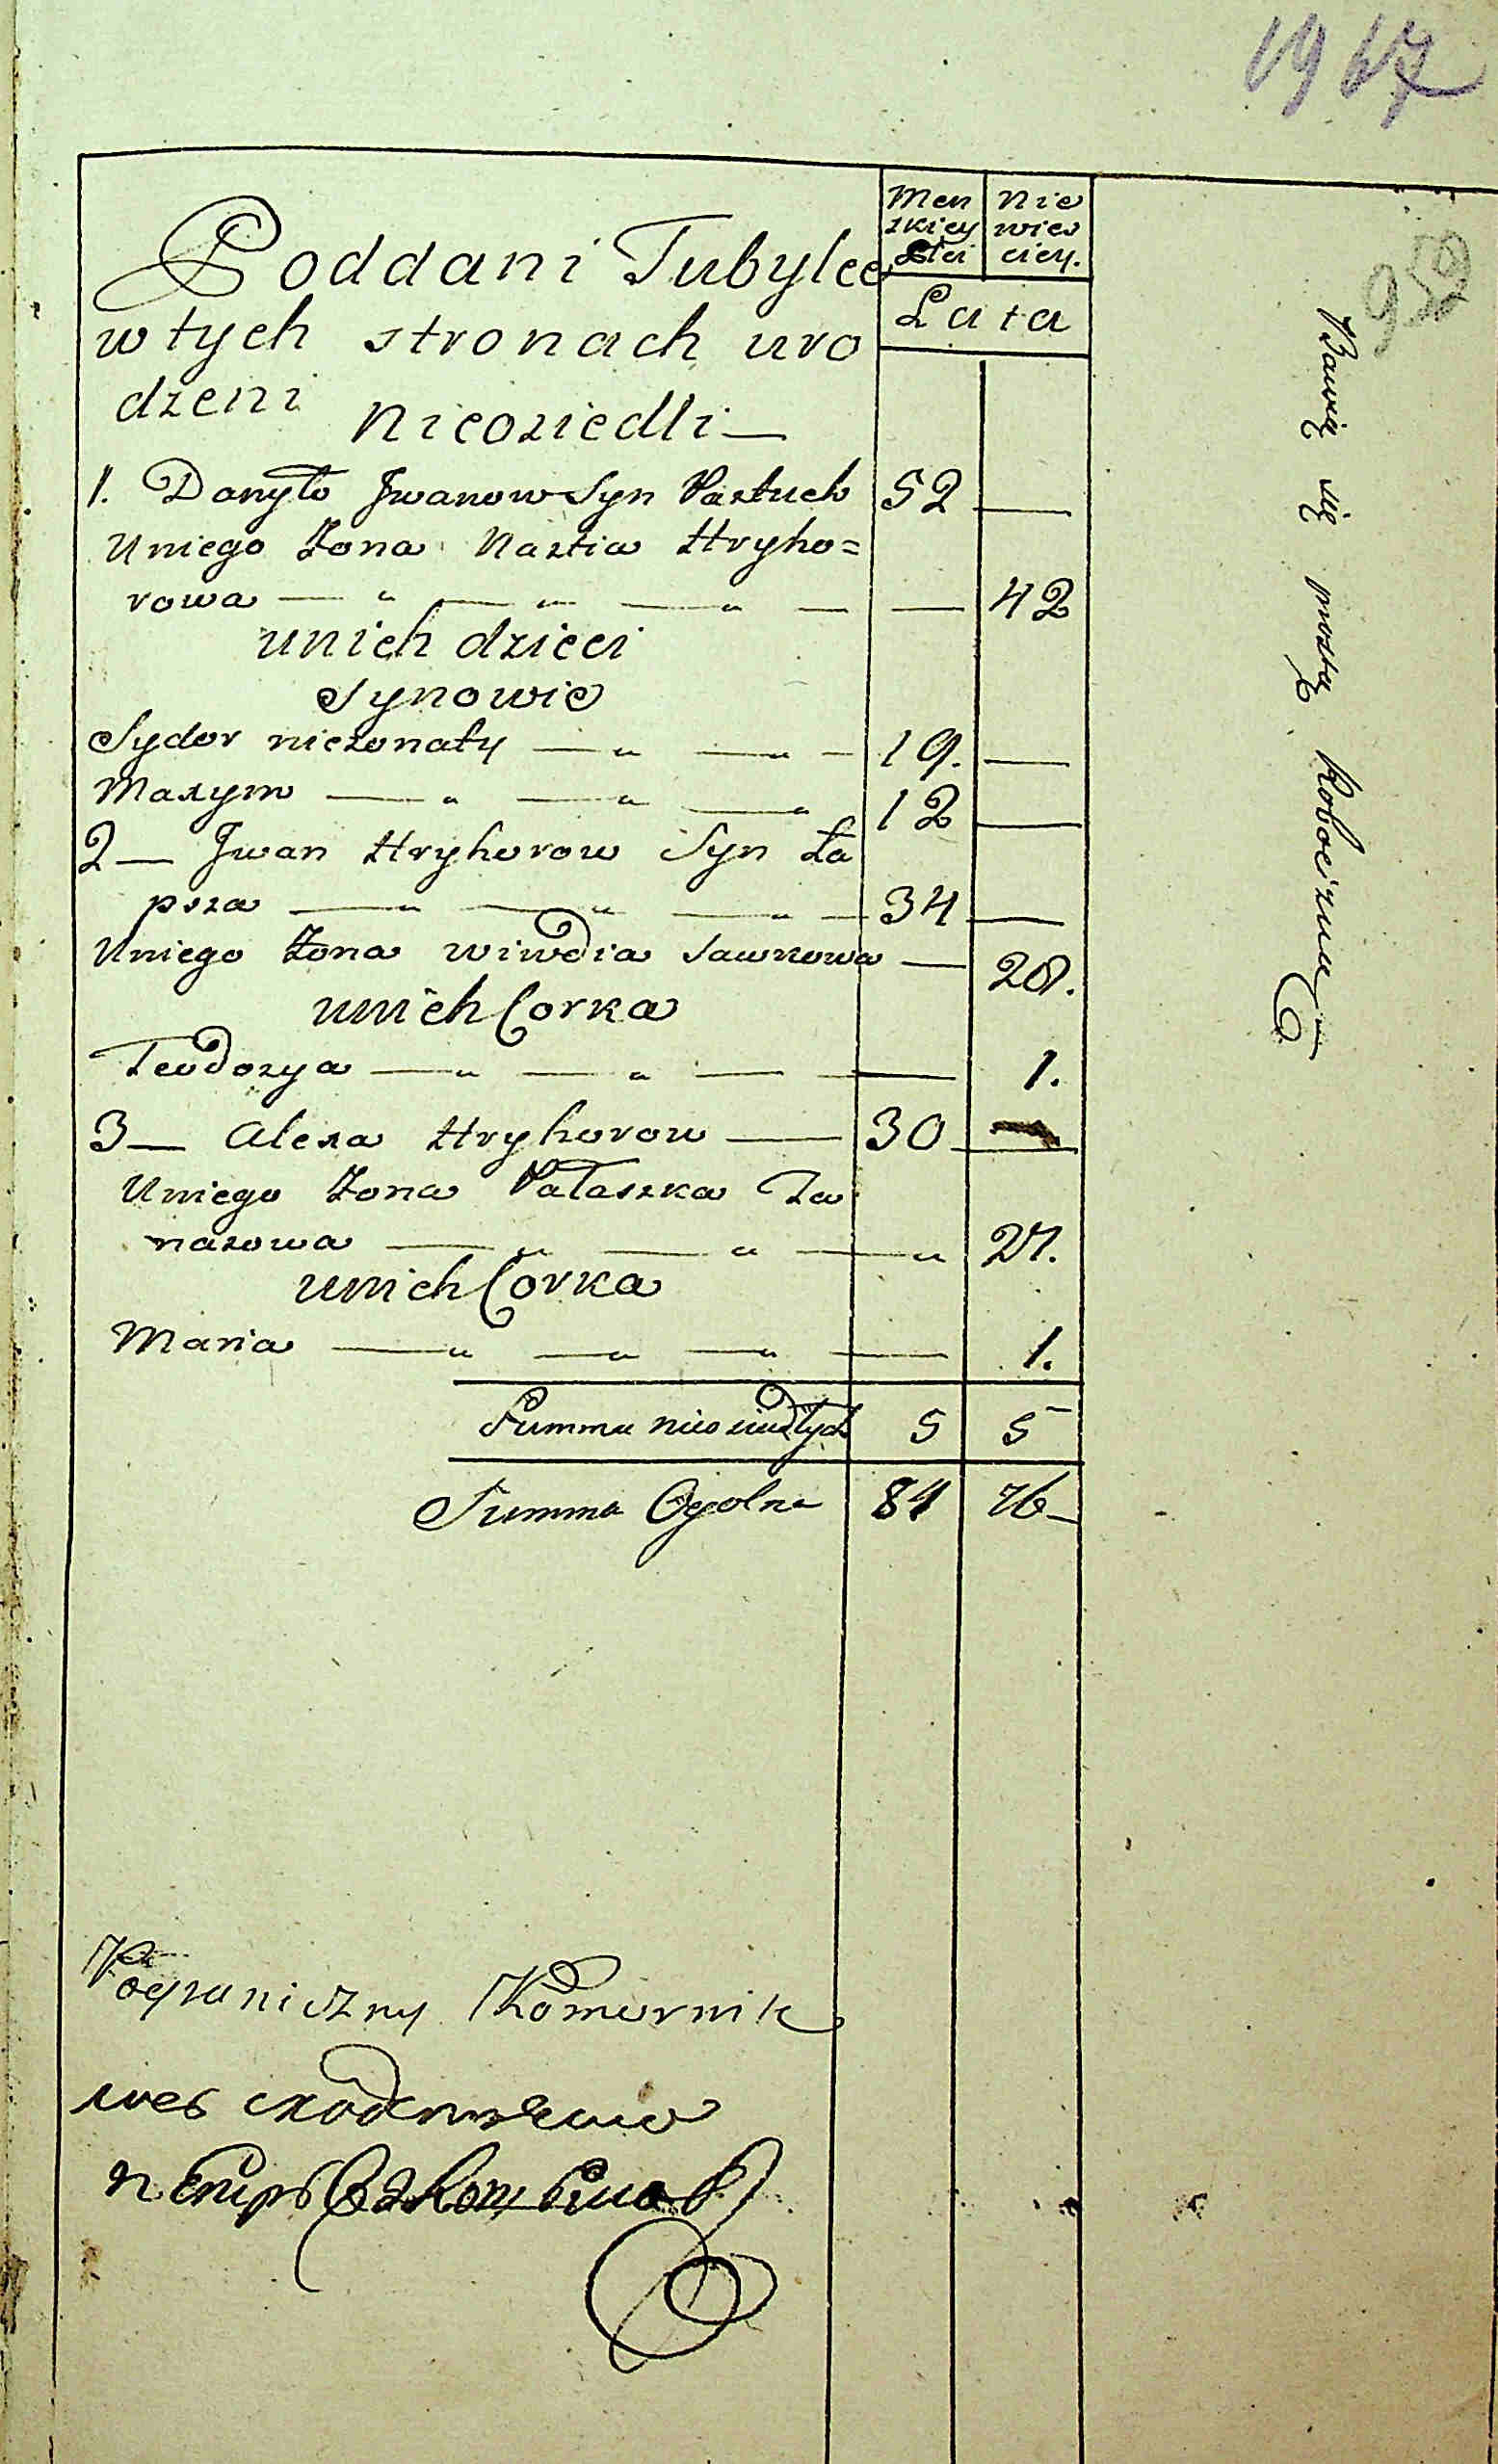 1967
959
Poddani Tubylce
w tych stronach uro
dzeni nieosiedli —
Men
skiey
Płci
Nie
wies
ciey.
Lata
1. Danyło Jwanow Syn Pastuch 52 —
Uniego Żona Nastia Hryho=
rowa — " — " — " — — 42
unich dzieci
Synowie
Sydor nieżonaty — " — " — 19. —
Maxym — " — " — " 12 —
2 — Jwan Hryhorow Syn Ła
psza — " — " — " — 34 —
Uniego Żona Wiwdia Sawkowa — 28.
unich Corka
Teodozya — " — " — — 1.
3 — Alexa Hryhorow — 30 —
Uniego Żona Pałaszka Ta
nasowa — " — " — " 27.
unich Corka
Maria — " — " — " — 1.
Summa nieosiadłych 5 5
Summa Ogolna 84 76 —
Bawią się prostą Robocizną
Pograniczny Komornik